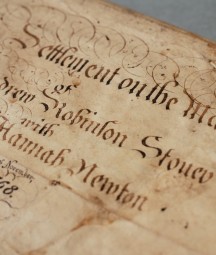 Settlement on the Ma
of
drew Robinson Stoney
with
Hannah Newton
68.